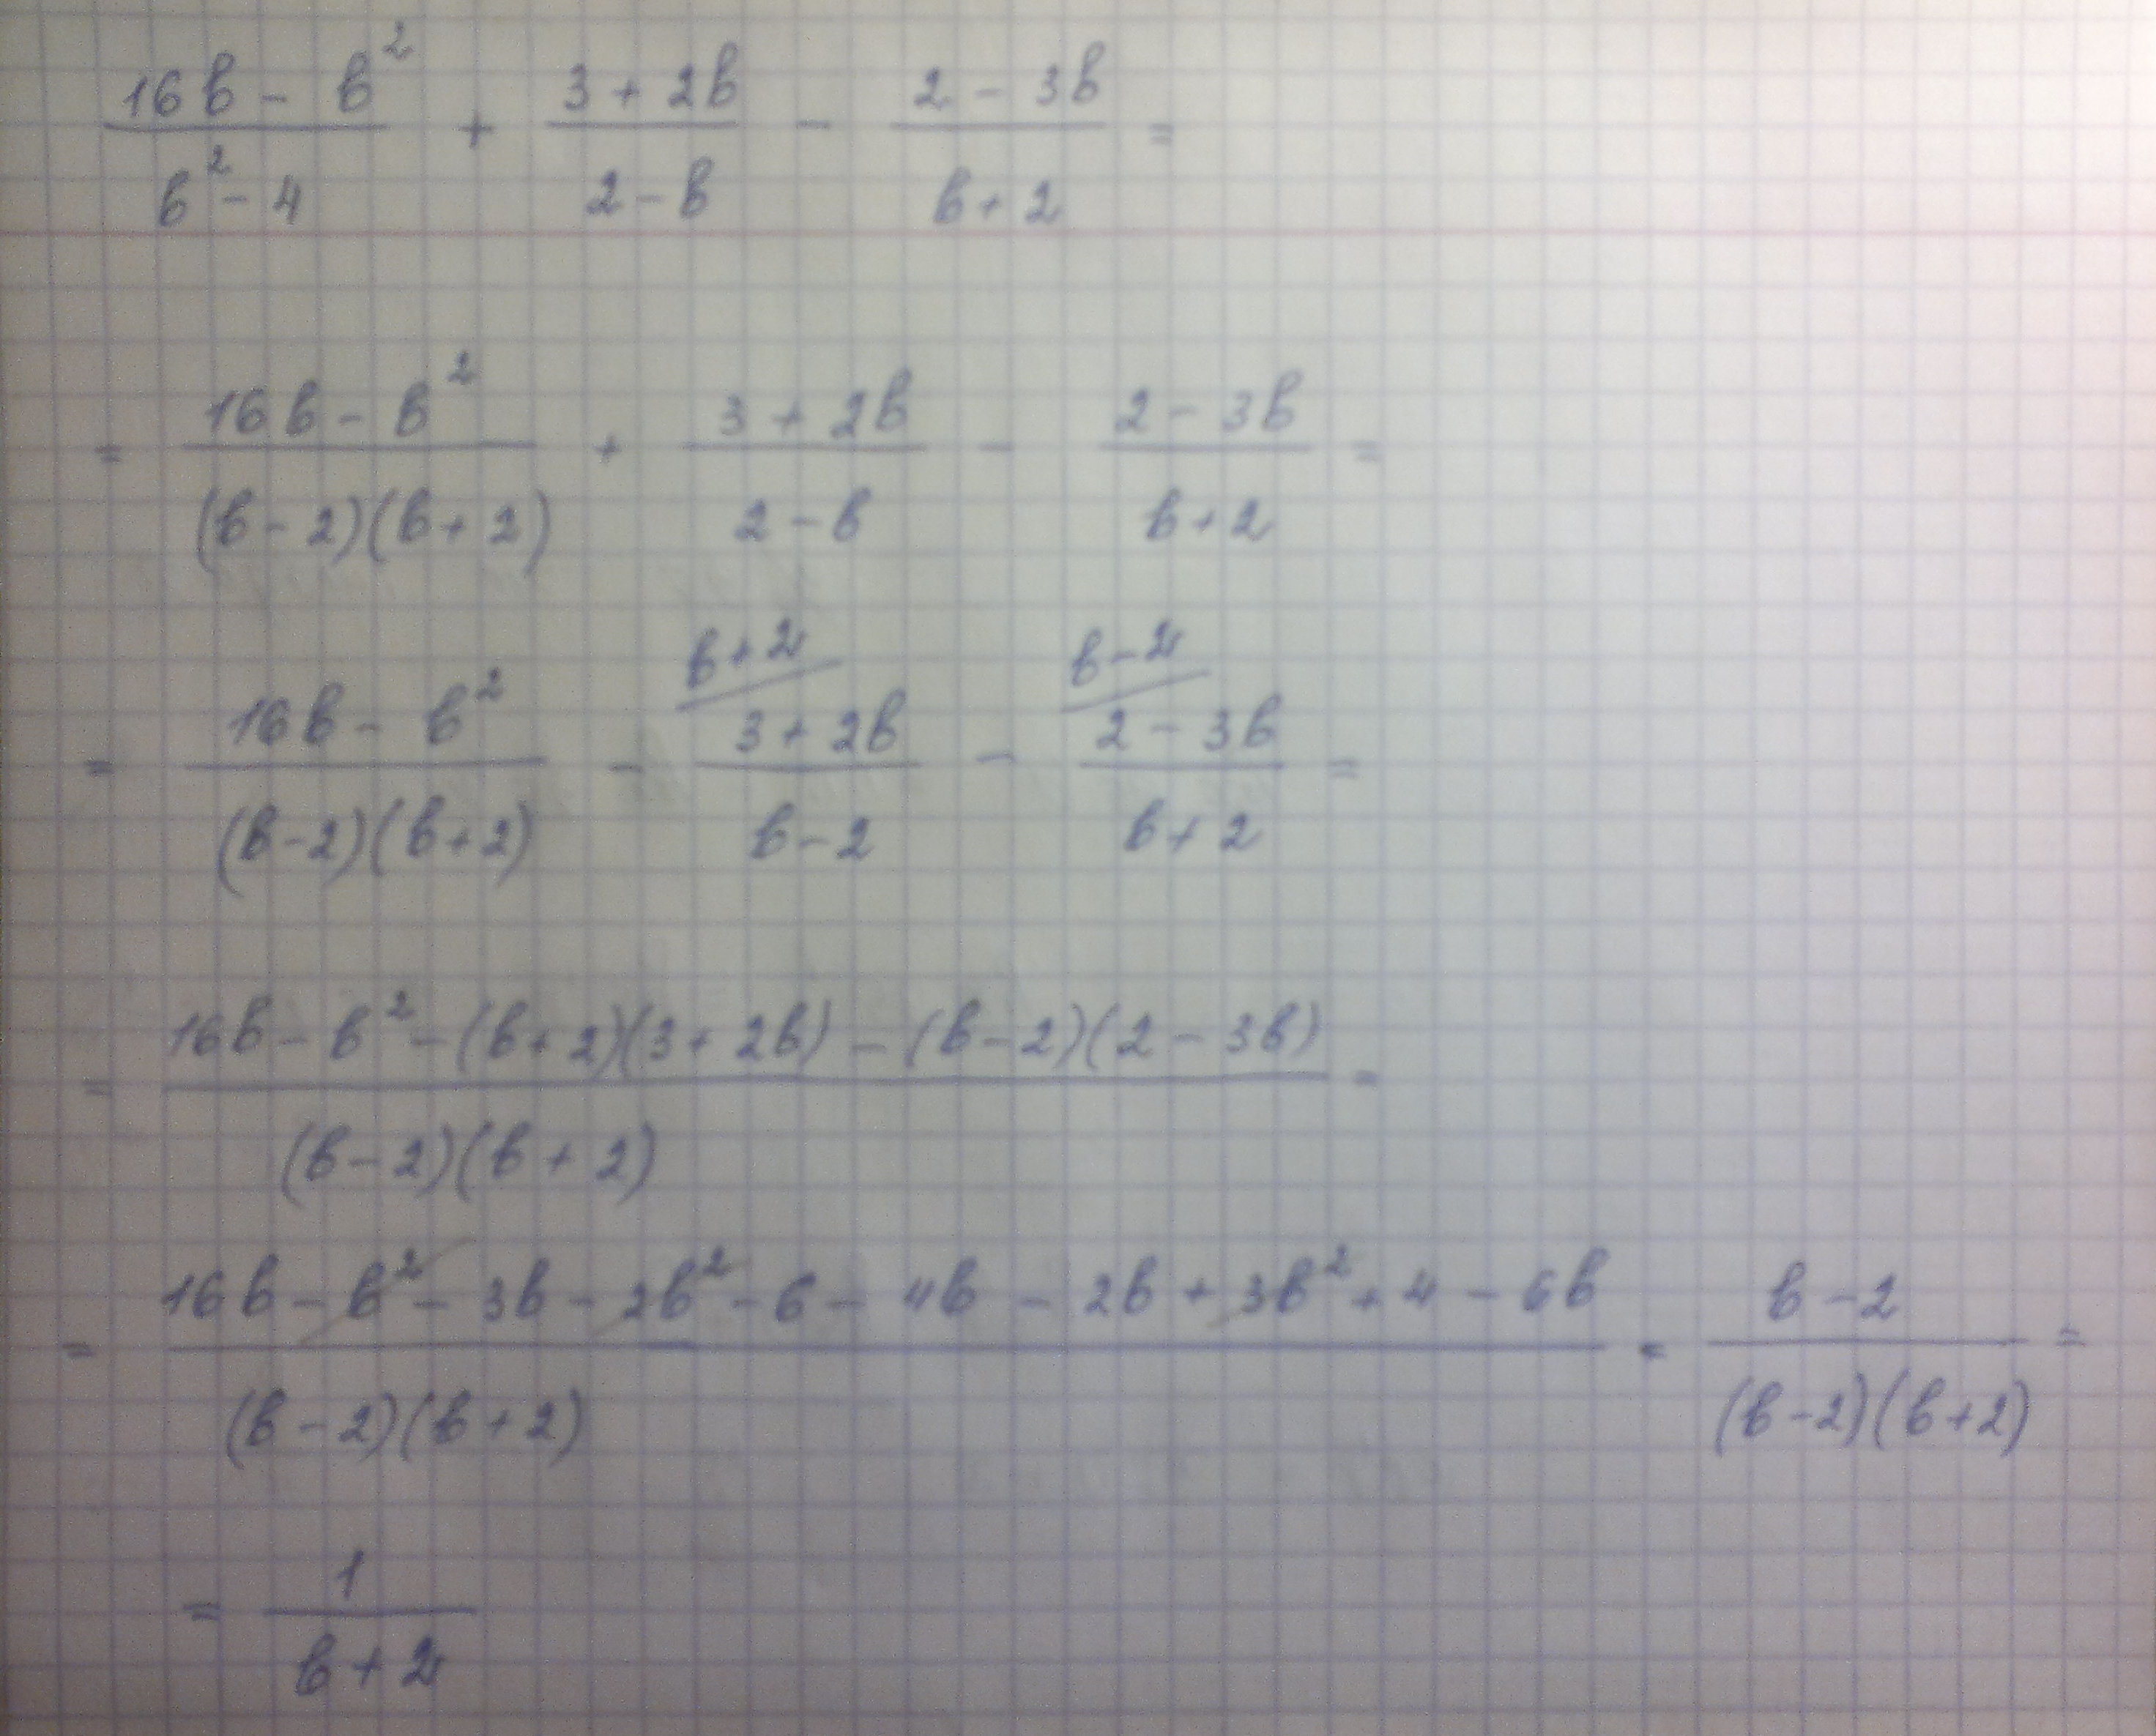 (16b - b²)/(b² - 4) + (3 + 2b)/(2 - b) - (2 - 3b)/(b + 2) =
= (16b - b²)/((b - 2)(b + 2)) + (3 + 2b)/(2 - b) - (2 - 3b)/(b + 2) =
b + 2 b - 2
= (16b - b²)/((b - 2)(b + 2)) - (3 + 2b)/(b - 2) - (2 - 3b)/(b + 2) =
= (16b - b² - (b + 2)(3 + 2b) - (b - 2)(2 - 3b))/((b - 2)(b + 2)) =
= (16b - b² - 3b - 2b² - 6 - 4b - 2b + 3b² + 4 - 6b)/((b - 2)(b + 2)) = (b - 2)/((b - 2)(b + 2)) =
= 1/(b + 2)